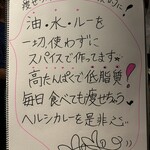 油・水・ルーを
一切使わずに
スパイスで作ってます
高たんぱくで低脂質!
毎日食べても痩せちゃう
ヘルシカレーを是非